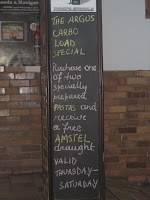 THE ARGUS
CARBO
LOAD
SPECIAL
Purchase one
of two
specially
prepared
PASTAS and
receive
a free
AMSTEL
draught
VALID
THURSDAY-
SATURDAY